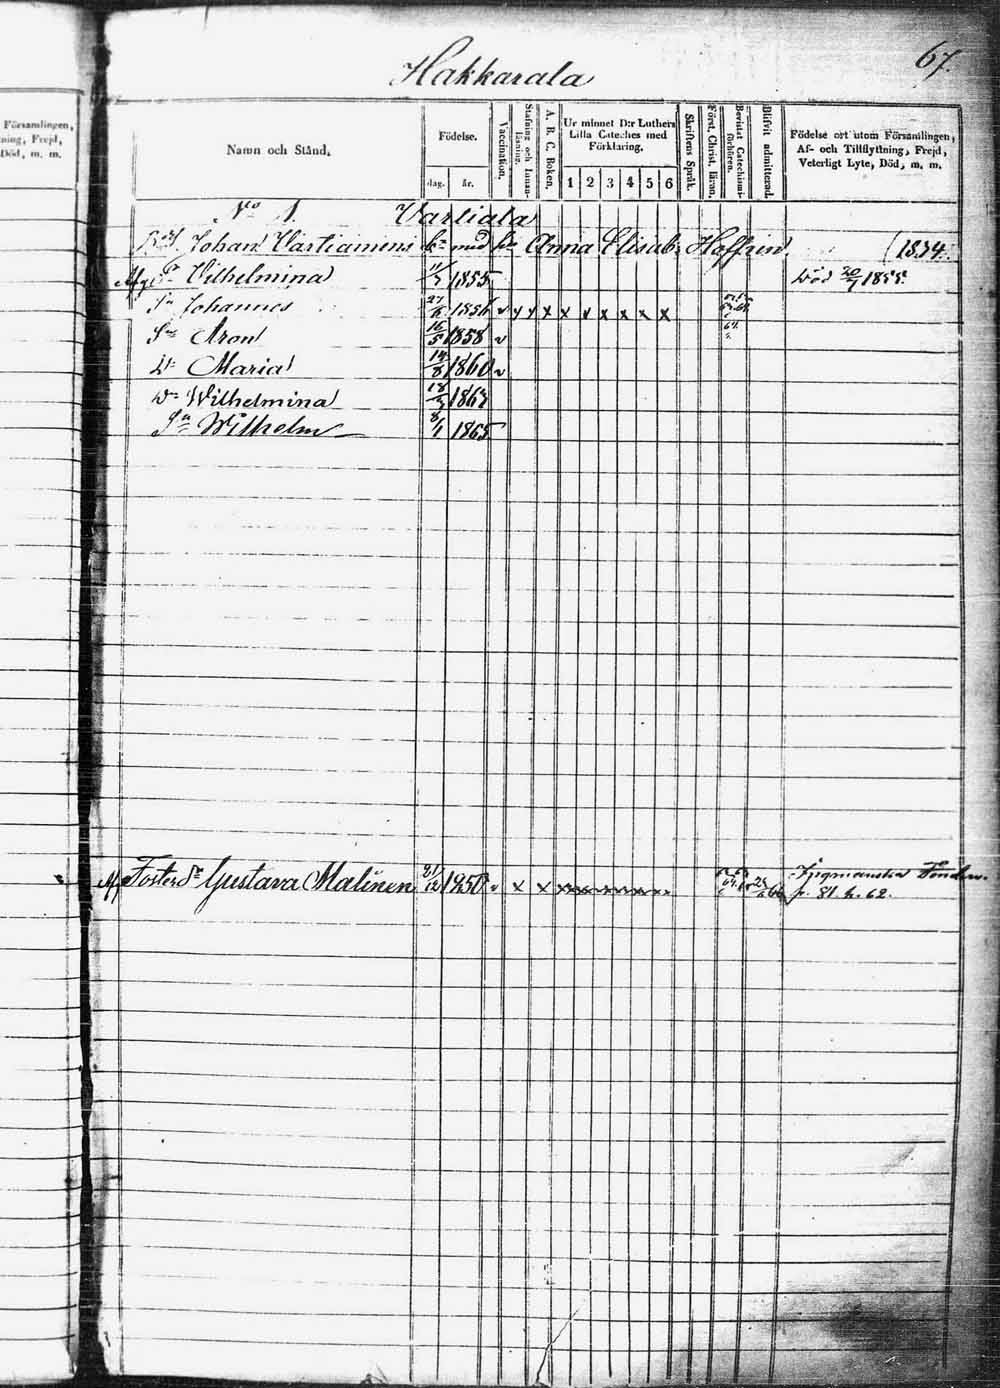 67.
Hakkarala
Församlingen,
ning, Frejd,
Död, m. m.
Namn och Stånd.
Födelse.
dag. år.
Vaccination.
Stafning och Innan-
läsning.
A. B. C. Boken.
Ur minnet D:r Luthers
Lilla Cateches med
Förklaring.
1 2 3 4 5 6
Skriftens Språk.
Först. Christ. läran.
Bevistat Catechismi-
förhören.
Blifvit admitterad.
Födelse ort utom Församlingen,
Af- och Tillflyttning, Frejd,
Veterligt Lyte, Död, m. m.
No 1. Vartiala
Johan Vartiainens med Anna Elisab: Hoffrén (1834.
Vilhelmina 1855 Död 20/7 1855.
Johannes 27/6 1856 v y y x x x x x x x
Sn Aron 16/5 1858 v 64.
Dr Maria 14/8 1860 v
Dr Wilhelmina 18/ 186
Sn Wilhelm 8/1 1865
Foster Dr Gustava Malinen 21/12 1850 v x x x x x x x x
p. 81. h. 62.